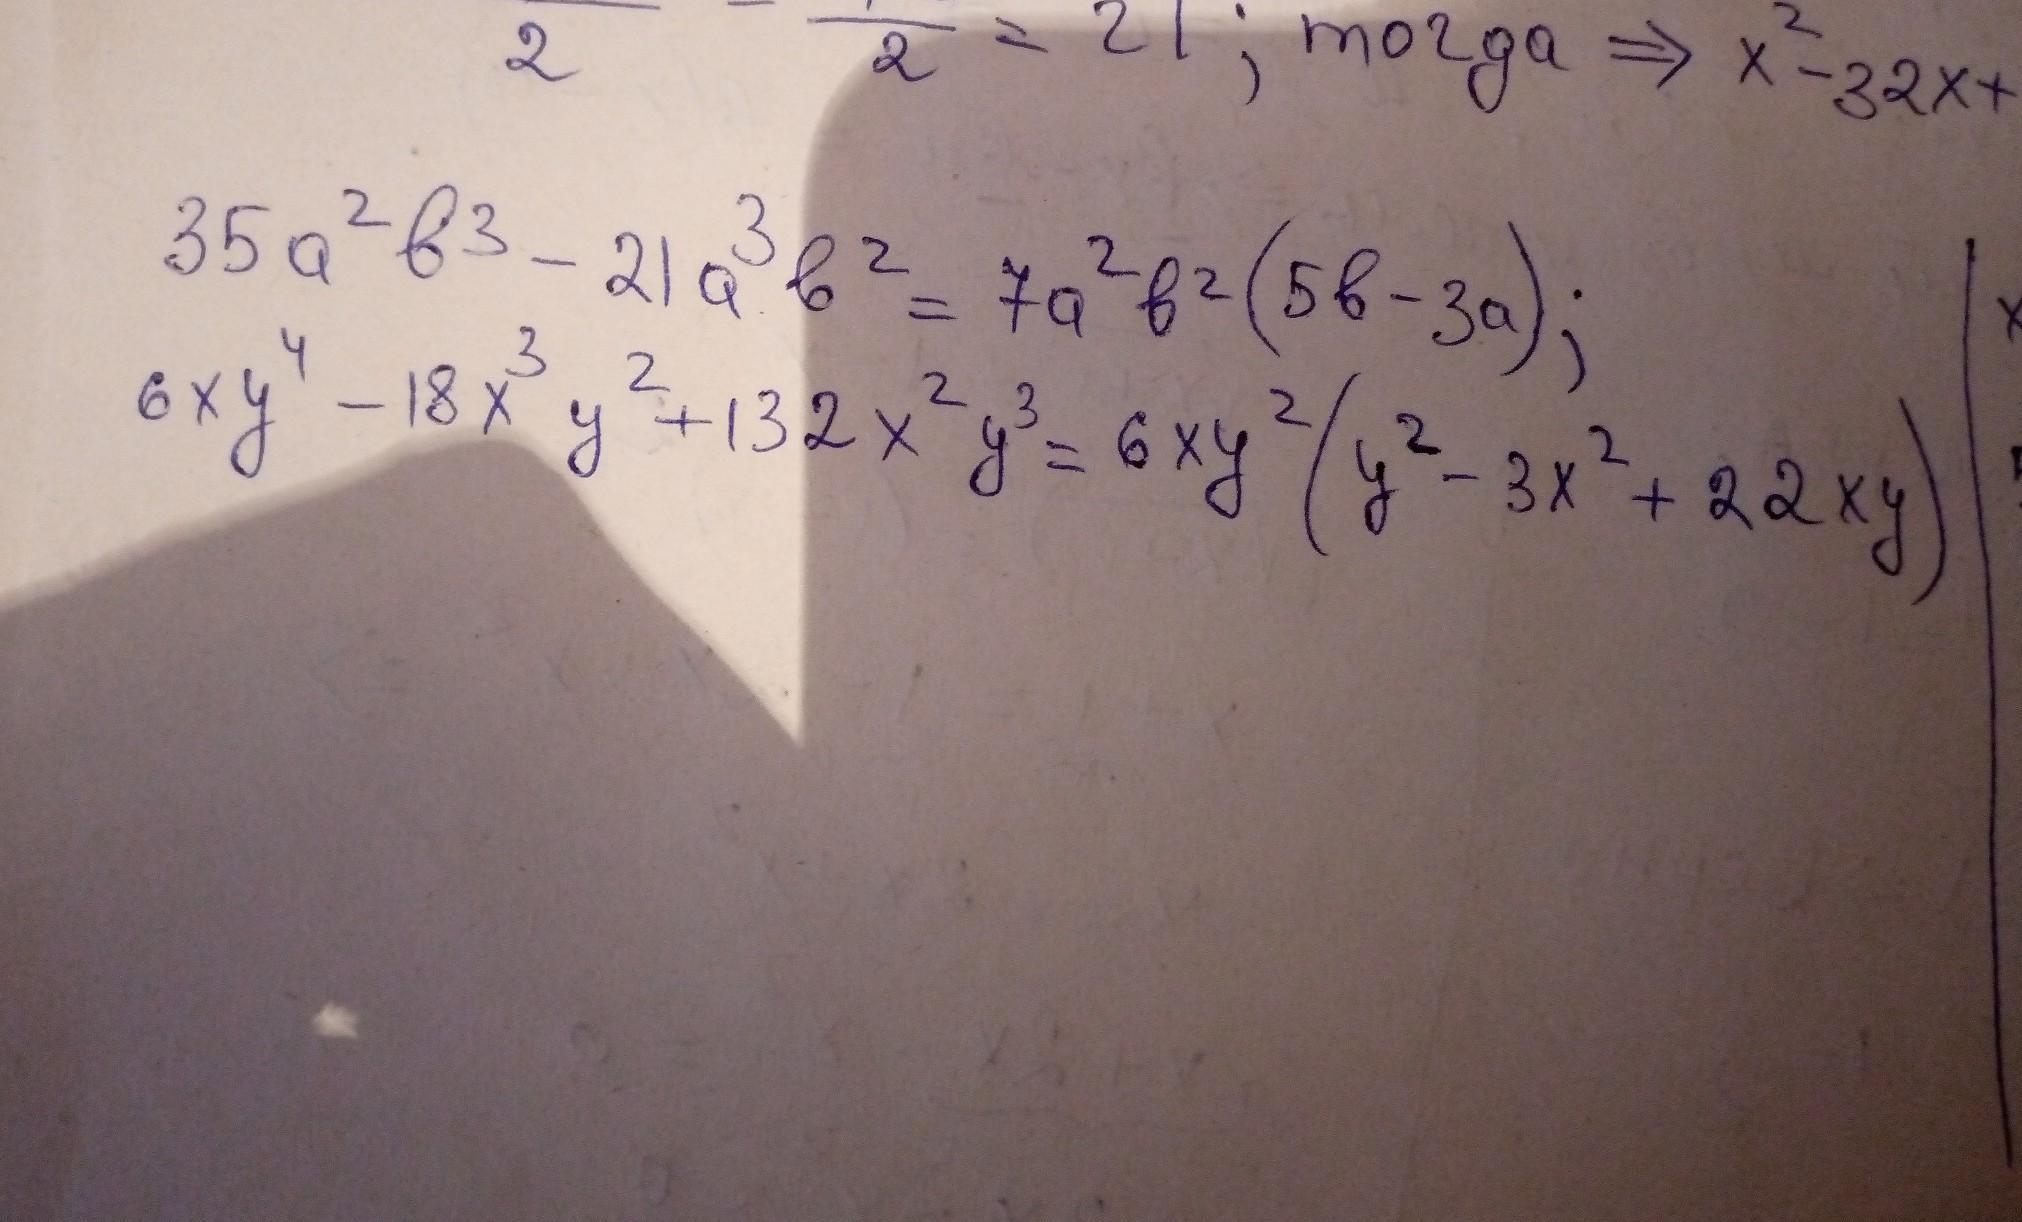 2 - 2 = 21; тогда ⇒ x² - 32x +
35a²b³ - 21a³b² = 7a²b²(5b - 3a);
6xy⁴ - 18x³y² + 132x²y³ = 6xy²(y² - 3x² + 22xy)